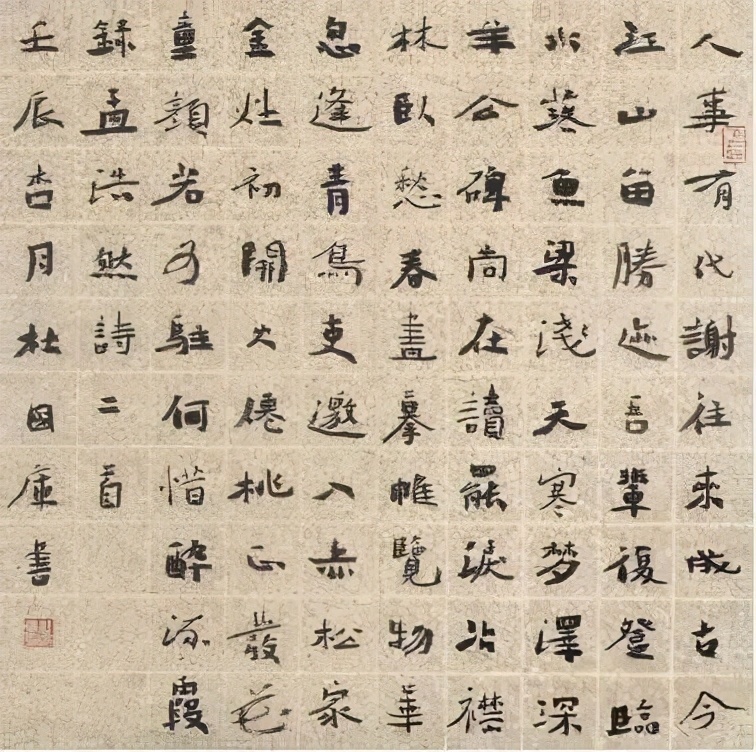 人事有代謝往來成古今
江山留勝迹吾輩復登臨
水落魚梁淺天寒梦澤深
羊公碑尚在讀罷淚沾襟
林臥愁春盡搴帷覽物華
忽逢青鳥吏邀入赤松家
金灶初開火僊桃正發花
童顏若可駐何惜醉流霞
錄孟浩然詩二首
壬辰杏月杜国庫書